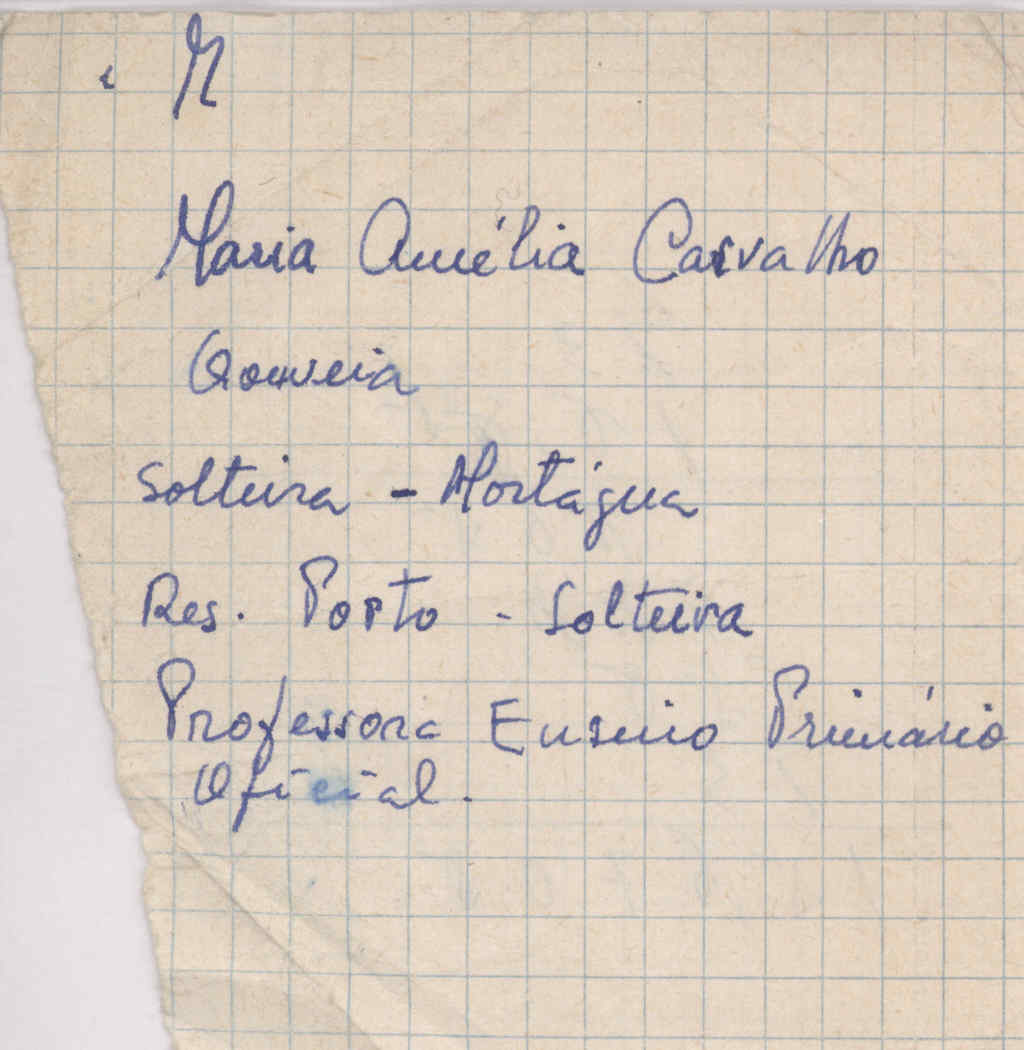 M
Maria Amélia Carvalho
Gouveia
Solteira - Mortágua
Res. Porto - Solteira
Professora Ensino Primário
Oficial.